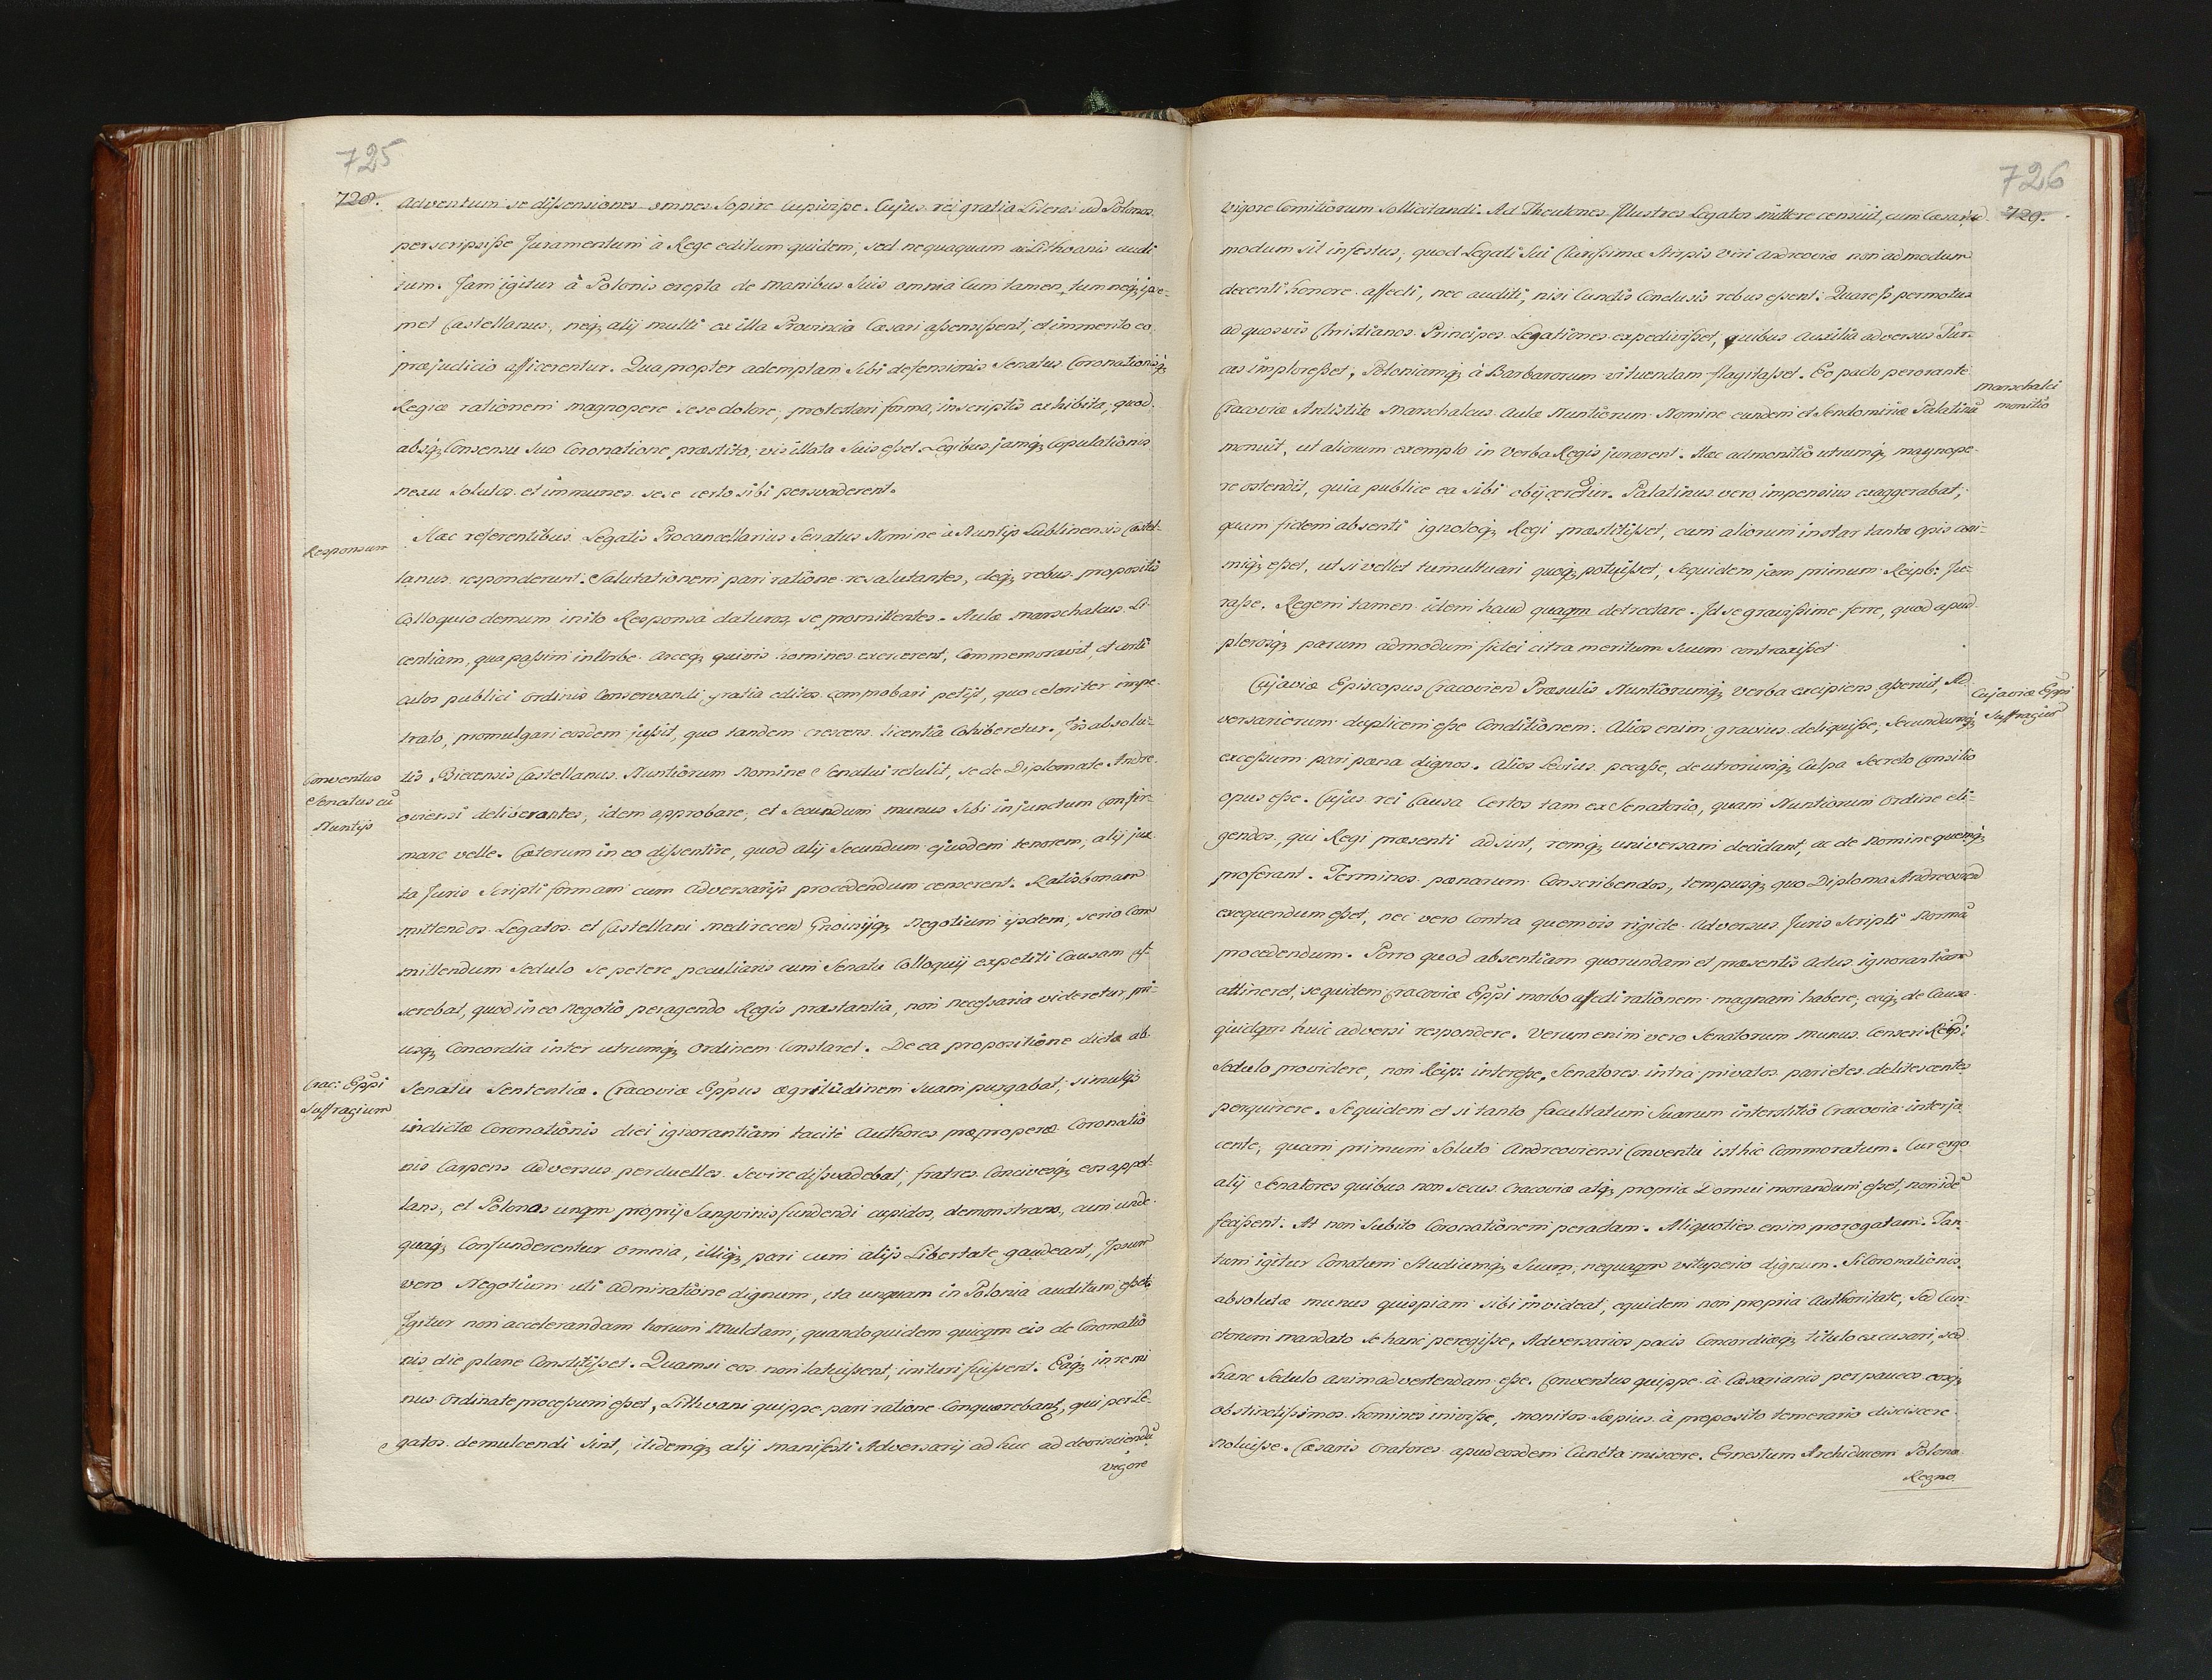 725
728.
Adventum se dissensiones omnes sopire cupivisse. Cujus rei gratia Literas ad Polonos
perscripsisse Juramentum à Rege editum quidem, sed nequaquam à Lithvanis audi
tum. Jam igitur à Polonis erepta de manibus suis omnia cum tamen tum neq; ipse-
met Castellanus, neq; alij multi ex illa Provincia Cæsari assensissent, et immerito eo
præjudicio afficerentur. Quapropter ademptam sibi defensionis Senatus Coronationisq;
Regiæ rationem magnopere sese dolere, protestari forma, inscriptis exhibita, quod
absq; Consensu suo Coronatione præstita, vis illata suis esset Legibus, jamq; Copulationis
nexu solutos et immunes sese certo sibi persvaderent.
Responsum
Hæc referentibus Legatis Procancellarius Senatus Nomine à Nuntijs Lublinensis Castel-
lanus responderunt. Salutationem pari ratione resalutantes, deq; rebus propositis
Colloquio demum inito Responsa daturos se promittentes. Aulæ Marschalcus Li-
centiam, qua passim in Urbe Arceq; quivis homines exercerent, Commemoravit, et arti
culos publici ordinis Conservandi gratia editos comprobari petijt, quo celeriter impe-
trato, promulgari eosdem jussit, quo tandem crescens licentia Cohiberetur. His absolu-
Conventus
Senatus cū
Nuntijs
tis Biecensis Castellanus Nuntiorum Nomine Senatui retulit, se de Diplomate Andre
oviensi deliberantes, idem approbare, et secundum munus sibi injunctum Confir-
mare velle. Cæterum in eo dissentire, quod alij secundum ejusdem tenorem, alij jux
ta Juris Scripti formam cum Adversarijs procedendum censerent. Ratisbonam
mittendos Legatos et Castellani Medirecen Gnoinijq; Negotium ijsdem, serio Com
mittendum sedulo se petere peculiaris cum Senatu Colloquij expetiti Causam as-
serebat, quod in eo Negotio peragendo Regis præstantia, non necessaria videretur, pri-
usq; Concordia inter utrumq; Ordinem Constaret. De ea propositione dictæ ab
Crac: Epp̄i
Suffragium
Senatu Sententiæ. Cracoviæ Epp̄us ægritudinem suam purgabat, simulq;
indictæ Coronationis diei ignorantiam tacitè Authores præproperæ Coronatio
nis Carpens Adversus perduelles sevire dissvadebat, fratres Concivesq; eos appel-
lans, et Polonos unqm proprij Sanguinis fundendi cupidos, demonstrans, cum unde
quaq; Confunderentur omnia, illiq; pari cum alijs Libertate gaudeant, Ipsum
vero Negotium uti admiratione dignum, ita unquam in Polonia auditum esset.
Igitur non accelerandam horum Mulctam, quandoquidem quicqm eis de Coronatio
nis die plane Constitisset. Quamsi eos non latuissent, inituri fuissent. Eaq; in re mi
nus Ordinate processum esset, Lithvani quippe pari ratione Conquærebant, qui per Le-
gatos demulcendi sint, itidemq; alij manifesti Adversarij ad huc ad devinciendū
vigore
726
729.
vigore Comitiorum sollicitandi. Ad Theutones Illustres Legatos mittere censuit, cum Cæsar ad
modum sit infestus, quod Legati sui Clarissimæ Stirpis viri Andreoviæ non admodum
decenti honore affecti, nec auditi, nisi Cunctis Conclusis rebus essent: Quare is permotus
ad quosvis Christianos Principes Legationes expedivisset, quibus Auxilia adversus Tur-
cas imploresset, Poloniamq; à Barbarorum vi tuendam flagitasset. Eo pacto perorante
Marschalci
monitio
Cracoviæ Antistite Marschalcus Aulæ Nuntiorum Nomine eundem et Sendomiriæ Palatinū
monuit, ut aliorum exemplo in verba Regis jurarent. Hæc admonitio utrumq; magnope-
re ostendit, quia publice ea sibi objiceretur. Palatinus vero impensius exaggerabat,
quam fidem absenti ignotoq; Regi præstitisset, cum aliorum instar tantæ opis ani-
miq; esset, ut si vellet tumultuari quoq; potuisset, Sequidem jam primum Reipb: Ju-
rasse, Regem tamen idem haud quaqm detrectare. Id se gravissime ferre, quod apud
plerosq; parum admodum fidei citra meritum suum contraxisset.
Cujaviæ Epp̄i
Suffragiū
Cujaviæ Episcopus Cracovien Præsulis Nuntiorumq; verba excipiens asseruit, Ad-
versariorum duplicem esse Conditionem. Alios enim gravius deliquisse, Secundumq;
excessum pari pæna dignos. Alios Levius pecasse, de utrorumq; Culpa Secreto Consilio
opus esse. Cujus rei Causa Certos tam ex Senatorio, quam Nuntiorum Ordine eli-
gendos, qui Regi præsenti adsint, remq; universam decidant, ac de Nomine quemq;
proferant. Terminos pænarum Conscribendos, tempusq; quo Diploma Andreovien
exequendum esset, nec vero Contra quemvis rigide Adversus Juris Scripti Normā
procedendum. Porro quod absentiam quorundam et præsentis Actus ignorantiam
attineret, sequidem Cracoviæ Epp̄i morbo affecti rationem magnam habere, eaq; de Causa
quidqm huic adversi respondere. Verum enim vero Senatorum munus Censeri Reip:
Sedulo providere, non Reip: interesse, Senatores intra privatos parietes delitescentes
perquirere. Sequidem et si tanto facultatum Suarum interstitio Cracovia interja
cente, quam primum Soluto Andreoviensi Conventu isthic Commoratum. Cur ergo
alij Senatores quibus non secus Cracoviæ atq; propriæ Domui morandum esset, non idē
fecissent. At non Subito Coronationem peractam. Aliquoties enim prorogatam. Tan-
tum igitur Conatum Studiumq; Suum, nequaqm vituperio dignum. Si Coronationis
absolutæ munus quispiam sibi invideat, equidem non propria Authoritate, Sed Cun-
ctorum mandato se hanc peregisse, Adversarios pacis Concordiæq; titulo excusari, sed
hanc Sedulo animadvertendam esse. Conventus quippe à Cæsarianis per paucos eosq;
obstinatissimos homines inivisse, monitos Sæpius à proposito temerario disciscere
noluisse. Cæsaris Oratores apud eosdem Cuncta miscere. Ernestum Archiducem Polono
Regno